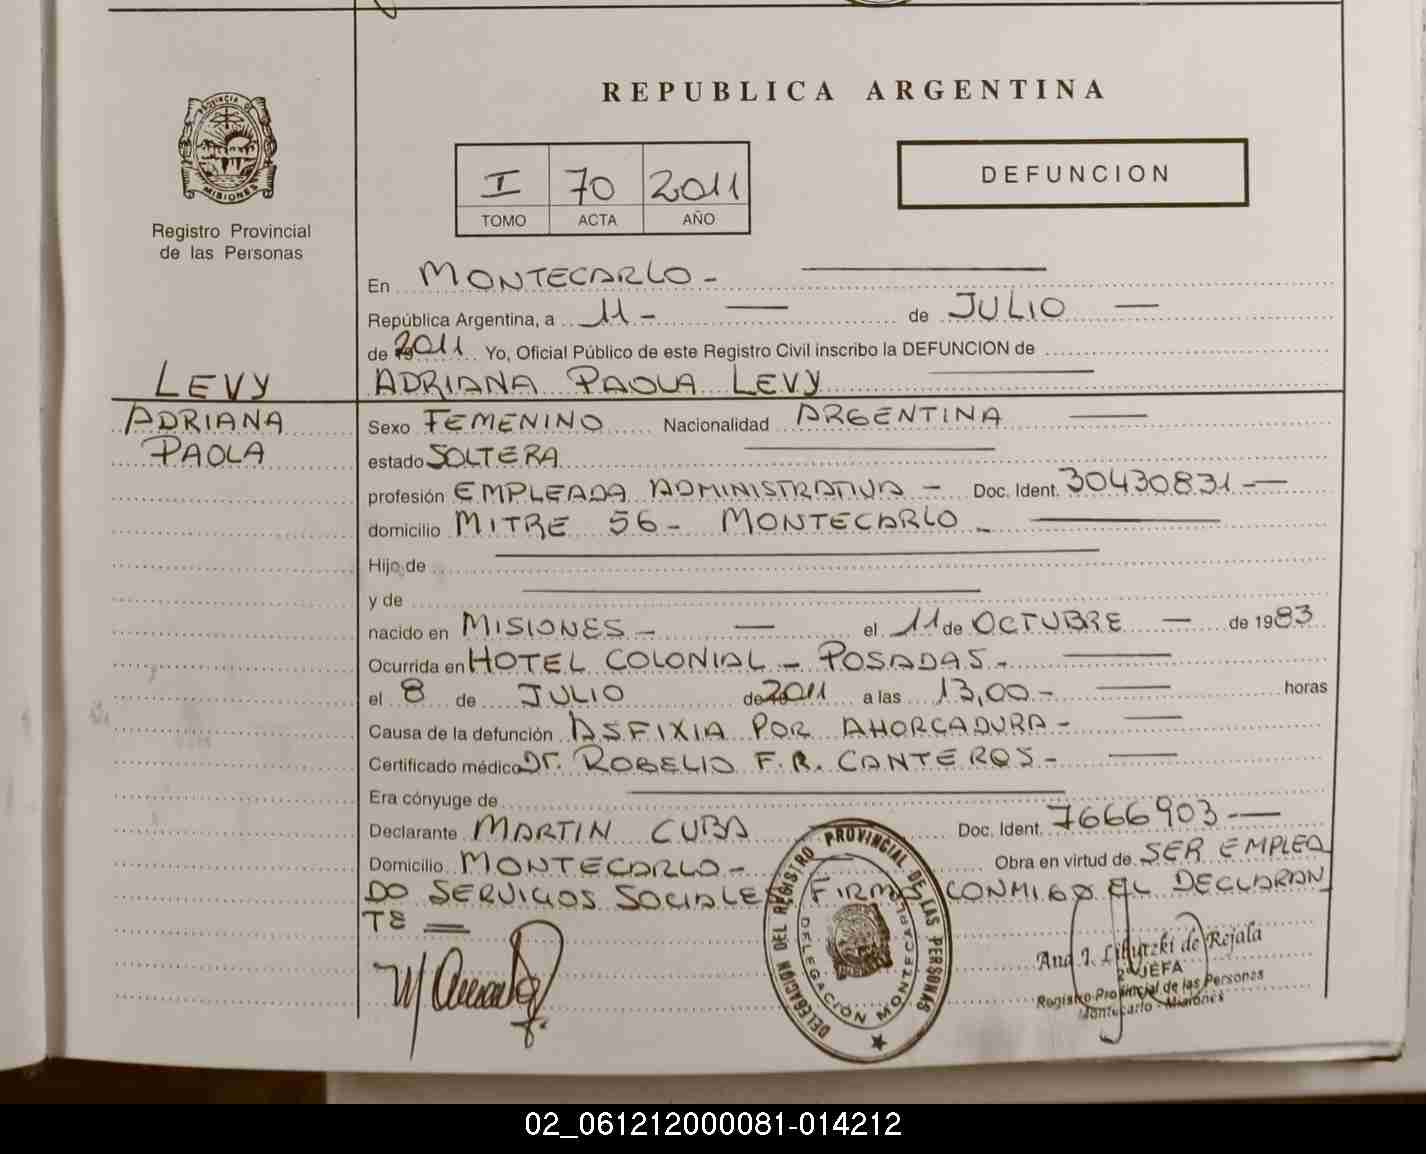 REPUBLICA ARGENTINA
PROVINCIA DE
MISIONES
Registro Provincial
de las Personas
I 70 2011
TOMO ACTA AÑO
DEFUNCION
En MONTECARLO -
República Argentina, a 11 - de JULIO
de 2011 Yo, Oficial Público de este Registro Civil inscribo la DEFUNCION de
LEVY
ADRIANA PAOLA LEVY
ADRIANA
PAOLA
Sexo FEMENINO Nacionalidad ARGENTINA
estado SOLTERA
profesión EMPLEADA ADMINISTRATIVA - Doc. Ident. 30430831 -
domicilio MITRE 56 - MONTECARLO -
Hijo de
y de
nacido en MISIONES - el 11 de OCTUBRE - de 1983
Ocurrida en HOTEL COLONIAL - POSADAS -
el 8 de JULIO de 2011 a las 13,00 - horas
Causa de la defunción ASFIXIA POR AHORCADURA -
Certificado médico Dr. ROGELIO F. R. CANTEROS -
Era cónyuge de
Declarante MARTIN CUBA Doc. Ident. 7666903 -
Domicilio MONTECARLO - Obra en virtud de SER EMPLEA
DO SERVICIOS SOCIALES FIRMA CONMIGO EL DECLARAN
TE =
DELEGACION DEL REGISTRO PROVINCIAL DE LAS PERSONAS
DELEGACIÓN MONTECARLO
de Rejala
2ª JEFA
Registro Provincial de las Personas
Montecarlo - Misiones
02_061212000081-014212